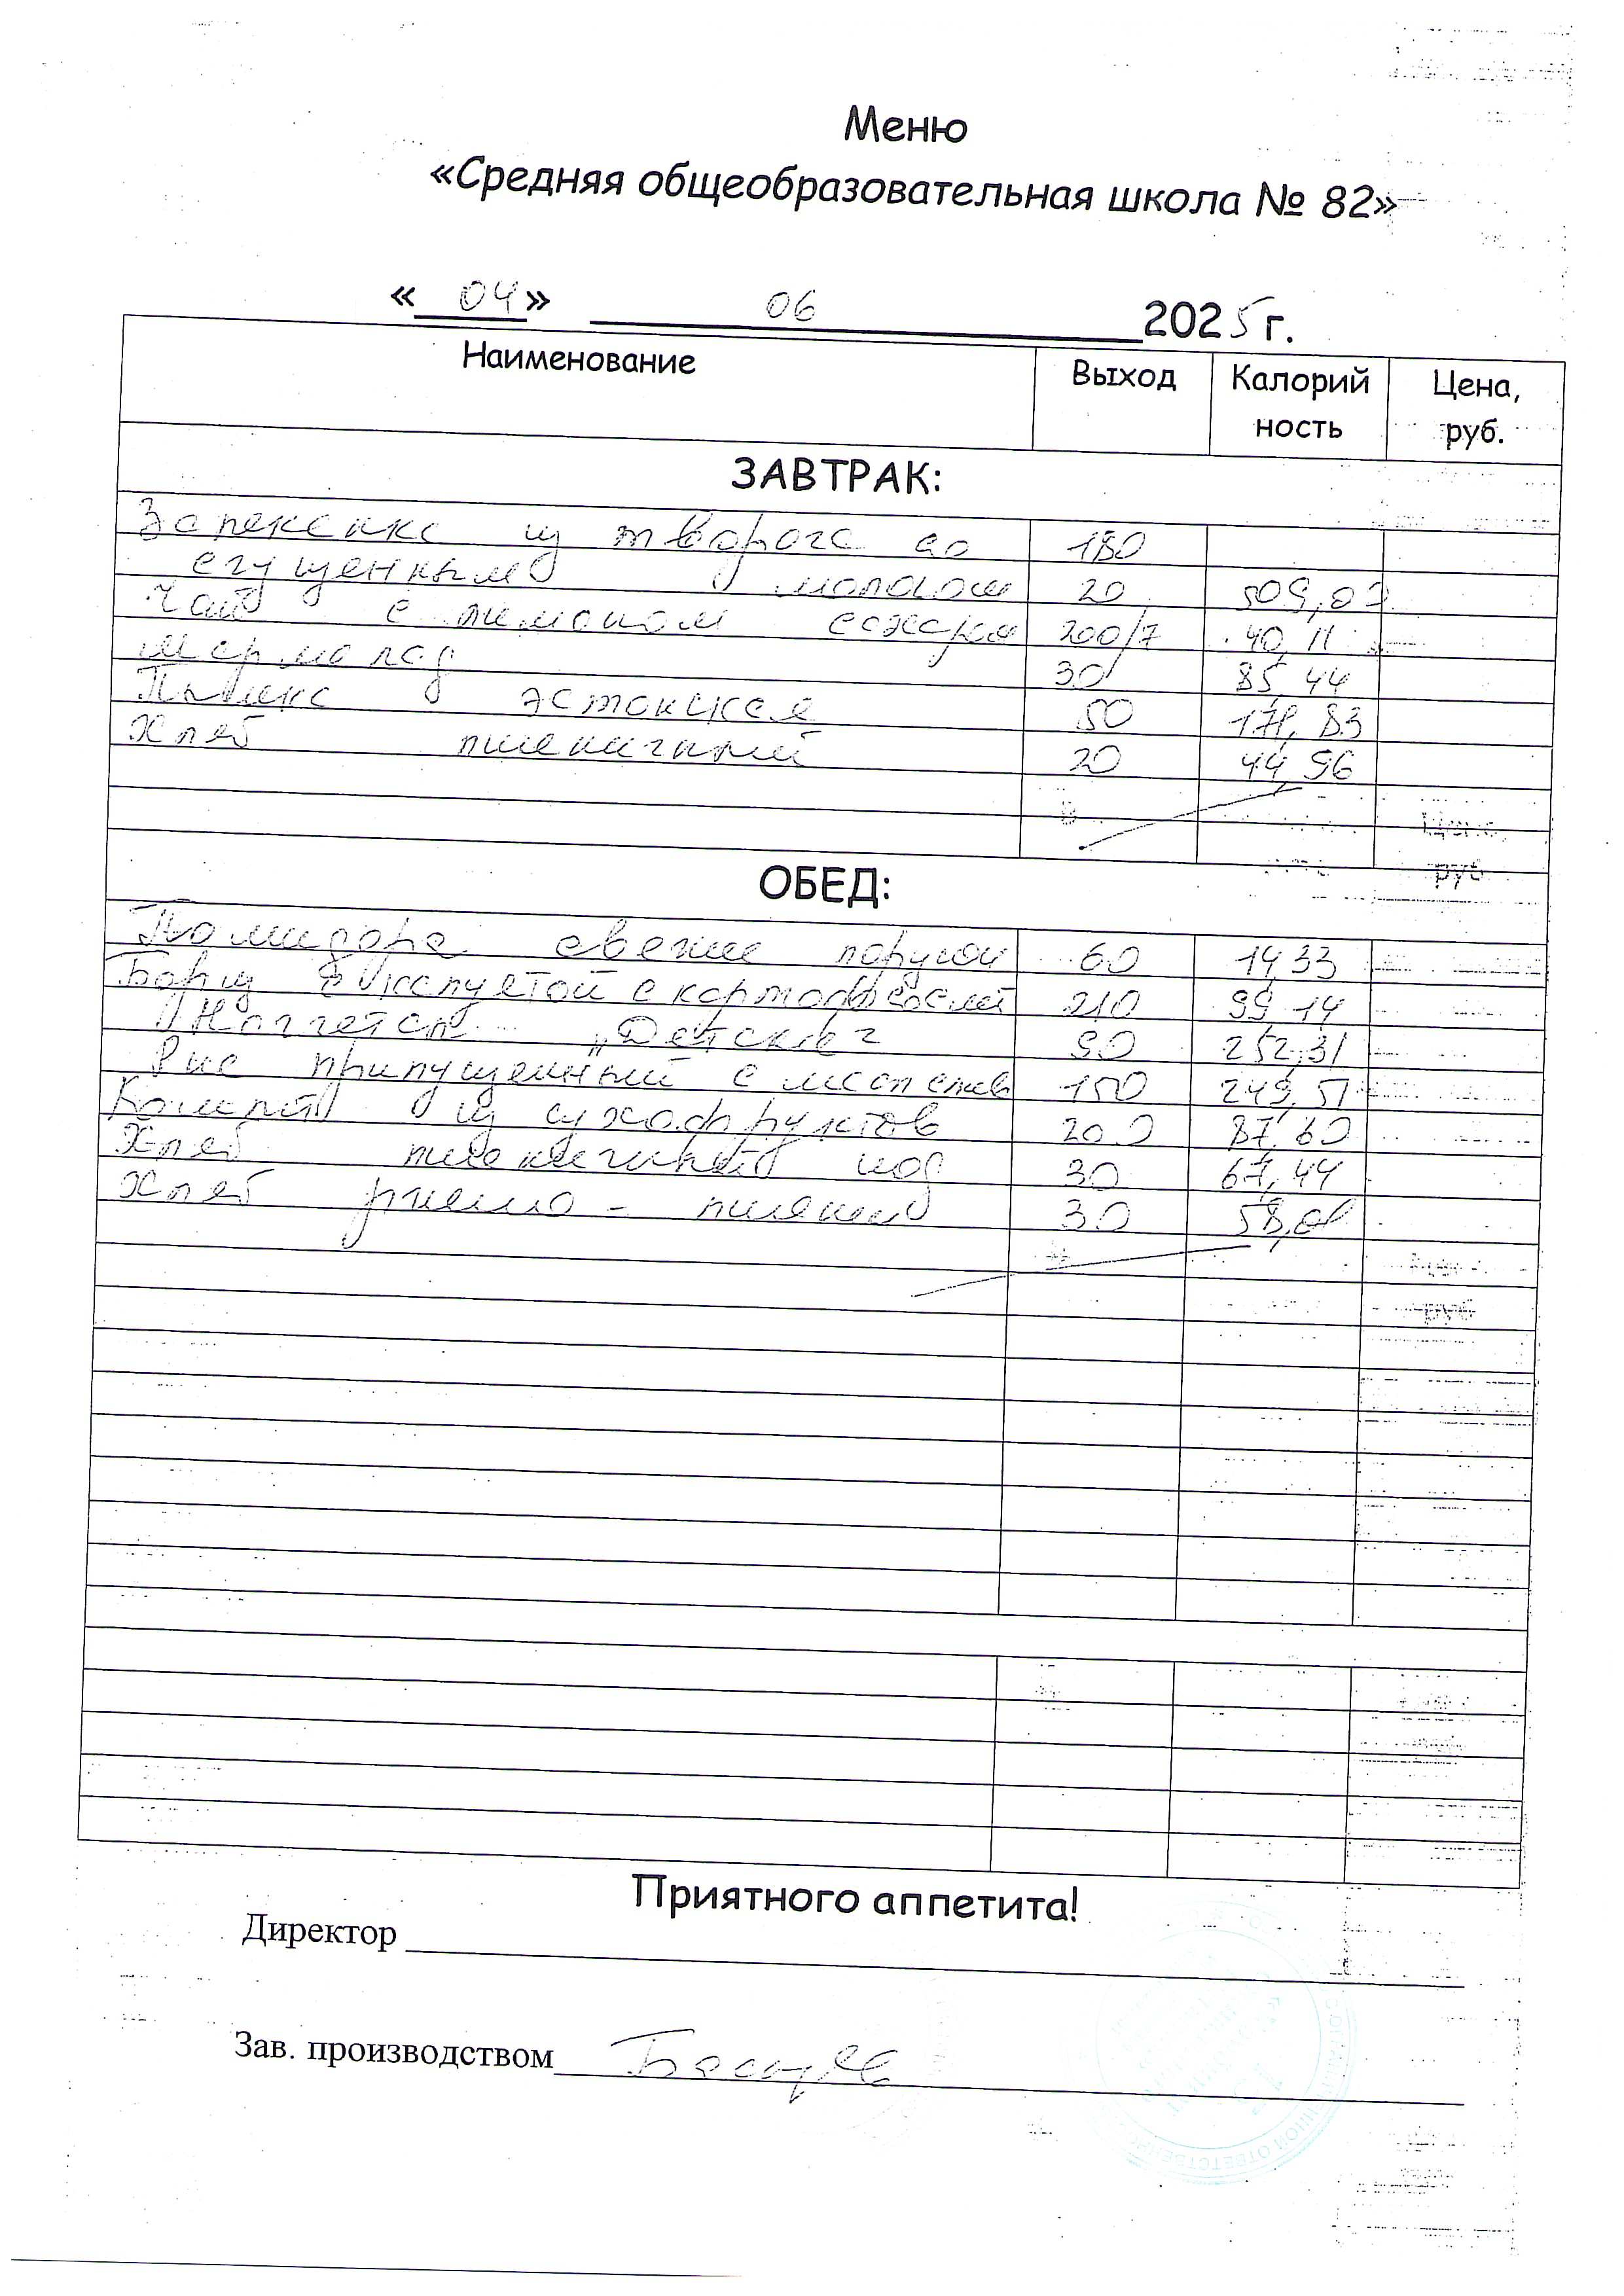 Меню
«Средняя общеобразовательная школа № 82»
«04» 06 2025 г.
Наименование Выход Калорий Цена,
ность руб.
ЗАВТРАК:
Запеканка из творога со 180
сгущенным молоком 20 509,02
Чай с лимоном сахаром 200/7 40,11
мармелад 30 85,44
Плюшка эстонская 50 178,83
Хлеб пшеничный 20 44,96
ОБЕД:
Помидора свежие порции 60 14,33
Борщ с капустой с картофелем 210 99,14
Наггетсы „Детские" 90 252,31
Рис припущенный с маслом 150 249,51
Компот из сухофруктов 200 87,60
Хлеб пшеничный йод 30 67,44
Хлеб ржано - пшенич 30 58,01
Приятного аппетита!
Директор
Зав. производством